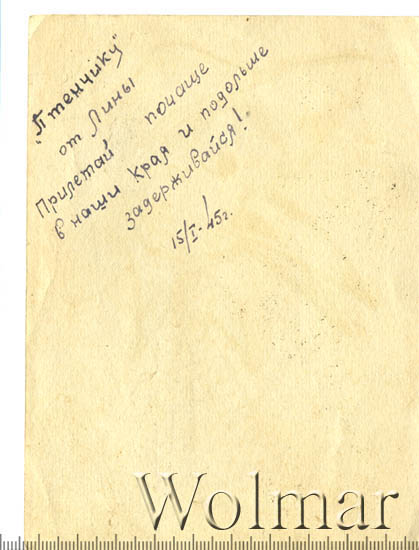 "Птенчику"
от Лины
Прилетай почаще
в наши края и подольше
задерживайся!
15/I-45г.
Wolmar